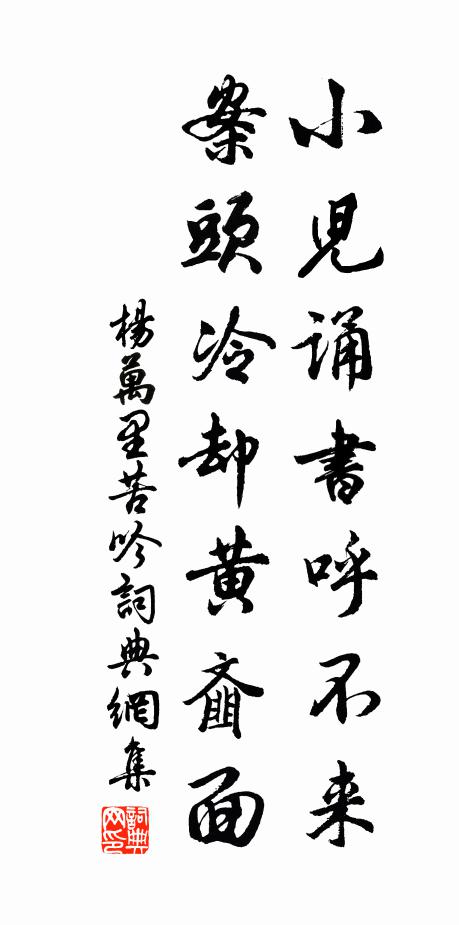 小児誦書呼不来
案頭冷却黄齑面
楊萬里苦吟詞典網集
詞典网印